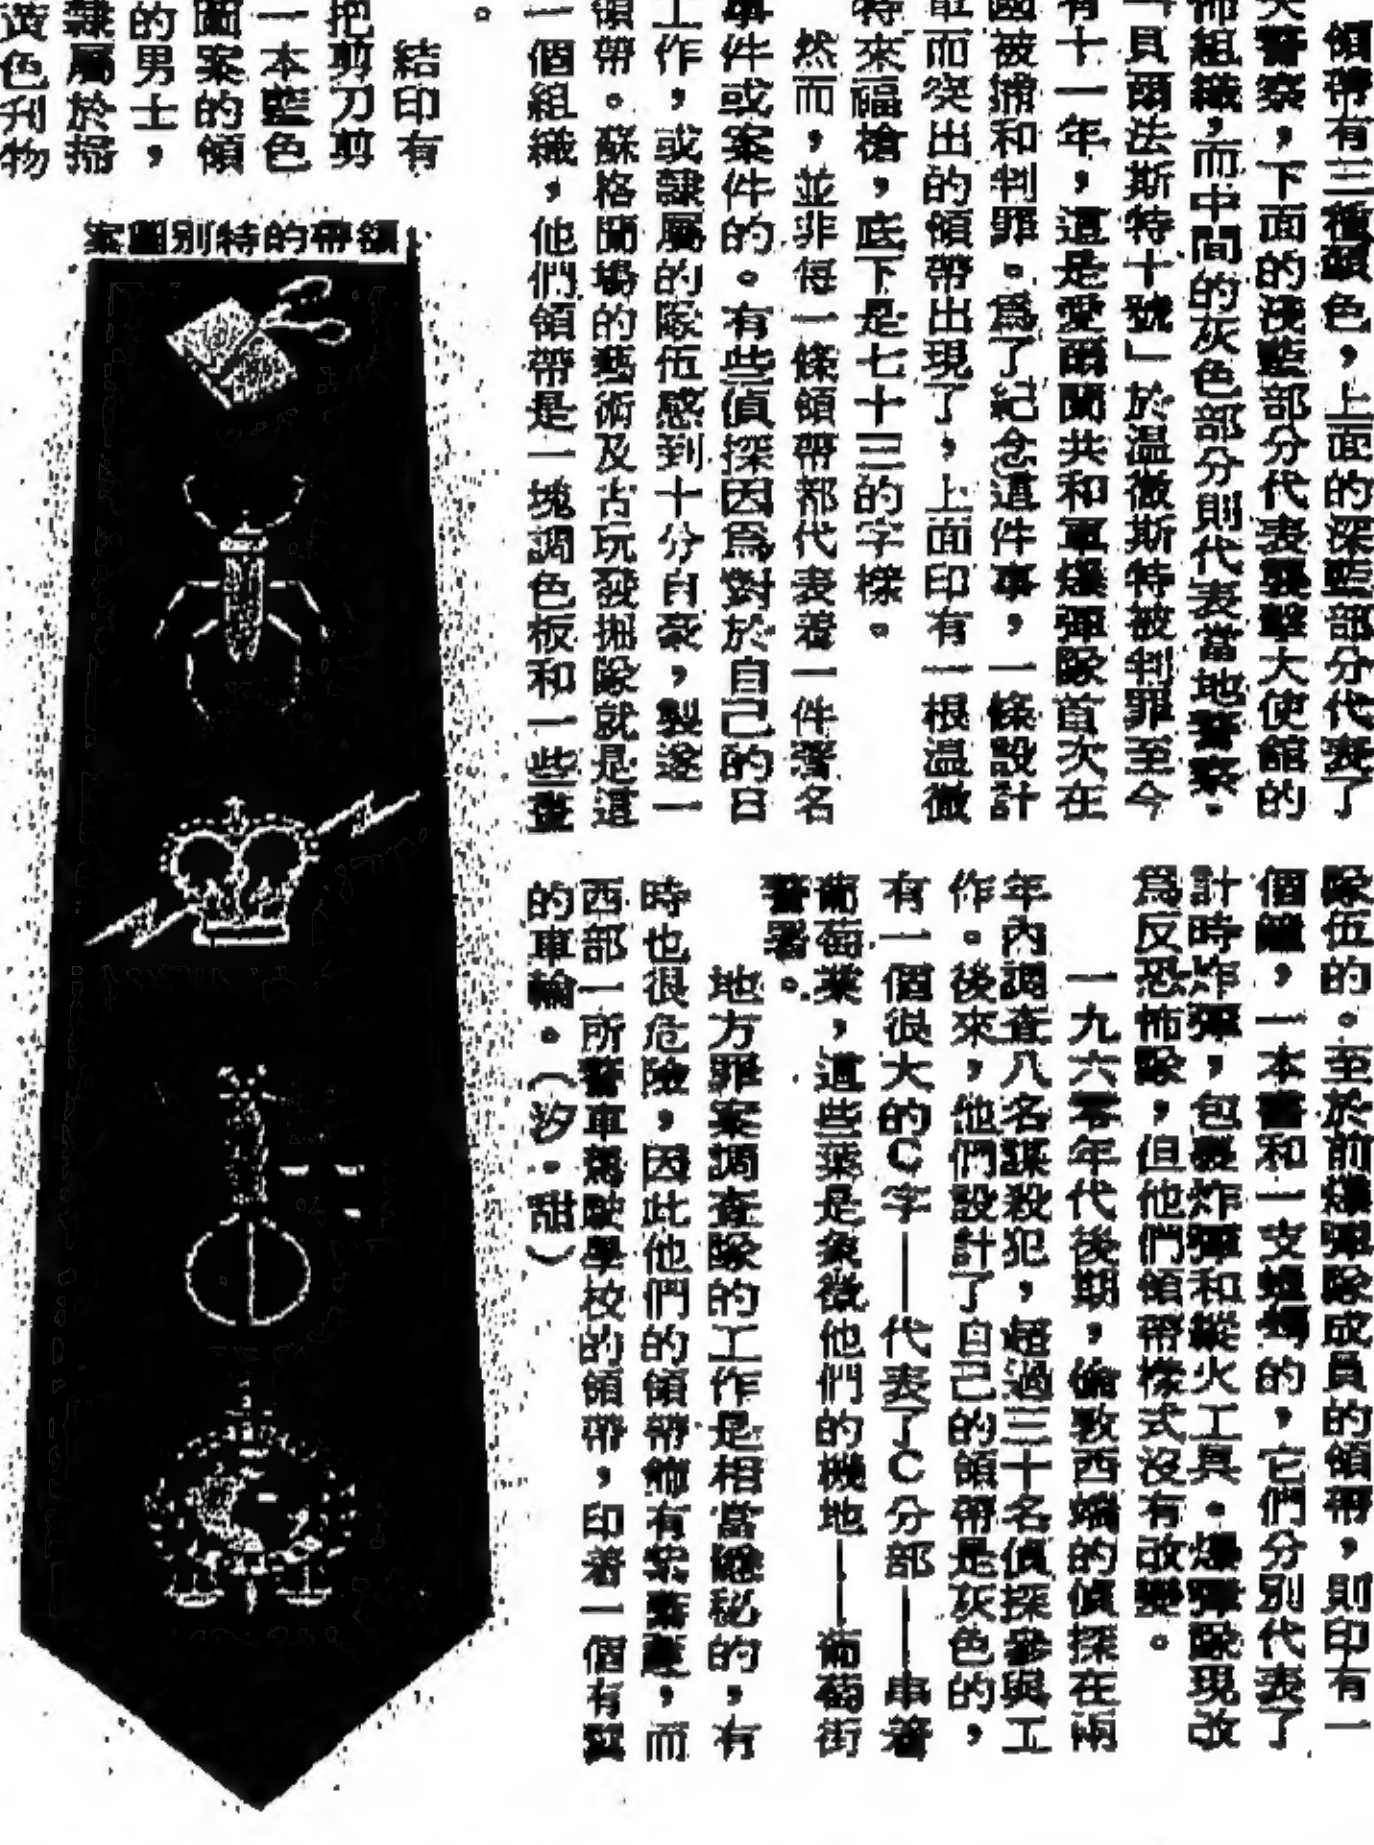 領帶有三種顏色，上面的深藍部分代表了
警察，下面的淺藍部分代表襲擊大使館的
怖組織，而中間的灰色部分則代表當地警察。
「貝爾法斯特十號」於温徹斯特被判罪至今
有十一年，這是愛爾蘭共和軍爆彈隊首次在
國被捕和判罪。爲了紀念這件事，一條設計
而突出的領帶出現了，上面印有一根温徹
特來福槍，底下是七十三的字樣。
然而，並非每一條領帶都代表着一件著名
事件或案件的。有些偵探因爲對於自己的日
工作，或隸屬的隊伍感到十分自豪，製造一
領帶。蘇格蘭場的藝術及古玩發掘隊就是這
一個組織，他們領帶是一塊調色板和一些畫
。
結印有
把剪刀剪
一本藍色
圖案的領
的男士，
隸屬於掃
黃色刊物
領帶的特別圖案
隊伍的。至於前爆彈隊成員的領帶，則印有一
個鐘，一本書和一支蠟燭的，它們分別代表了
計時炸彈，包裹炸彈和縱火工具。爆彈隊現改
爲反恐怖隊，但他們領帶樣式沒有改變。
一九六零年代後期，倫敦西端的偵探在兩
年內調查八名謀殺犯，超過三十名偵探參與工
作。後來，他們設計了自己的領帶是灰色的，
有一個很大的C字——代表了C分部——串着
葡萄葉，這些葉是象徵他們的機地——葡萄街
警署。
地方罪案調查隊的工作是相當隱秘的，有
時也很危險，因此他們的領帶飾有索，而
西部一所警車駕駛學校的領帶，印着一個有翼
的車輪。（汐·甜）